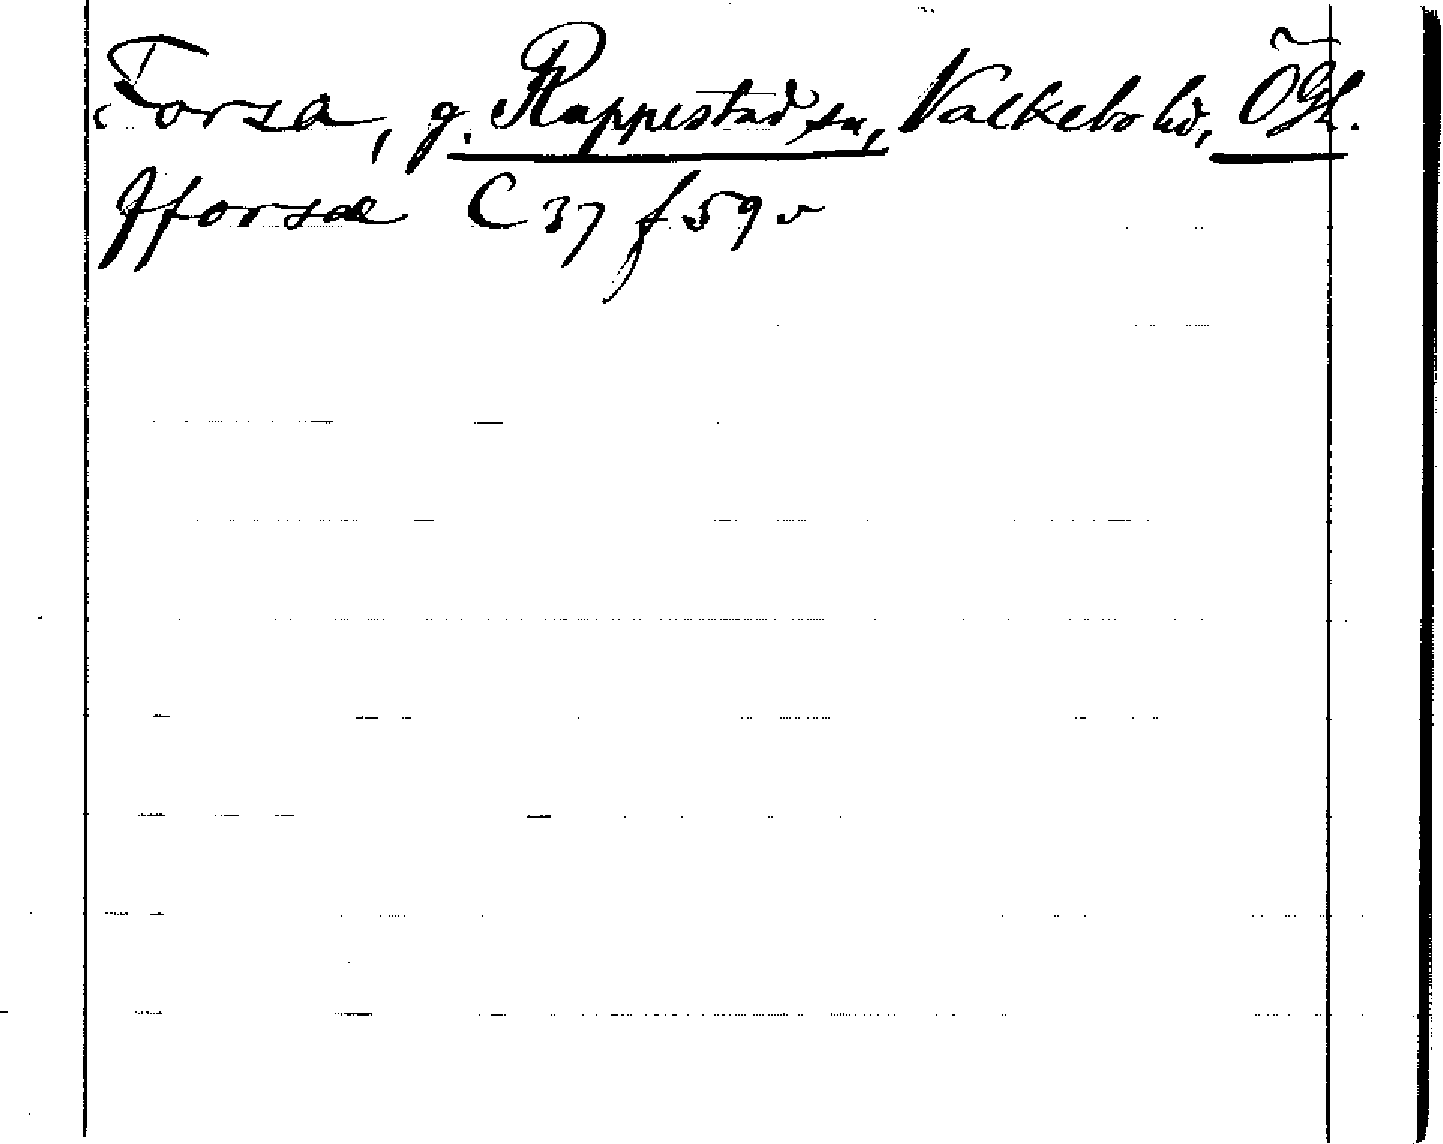 Forsa, g. Rappestad sn, Valkebo hd, Ögl.
fforsæ C 37 f 59 v